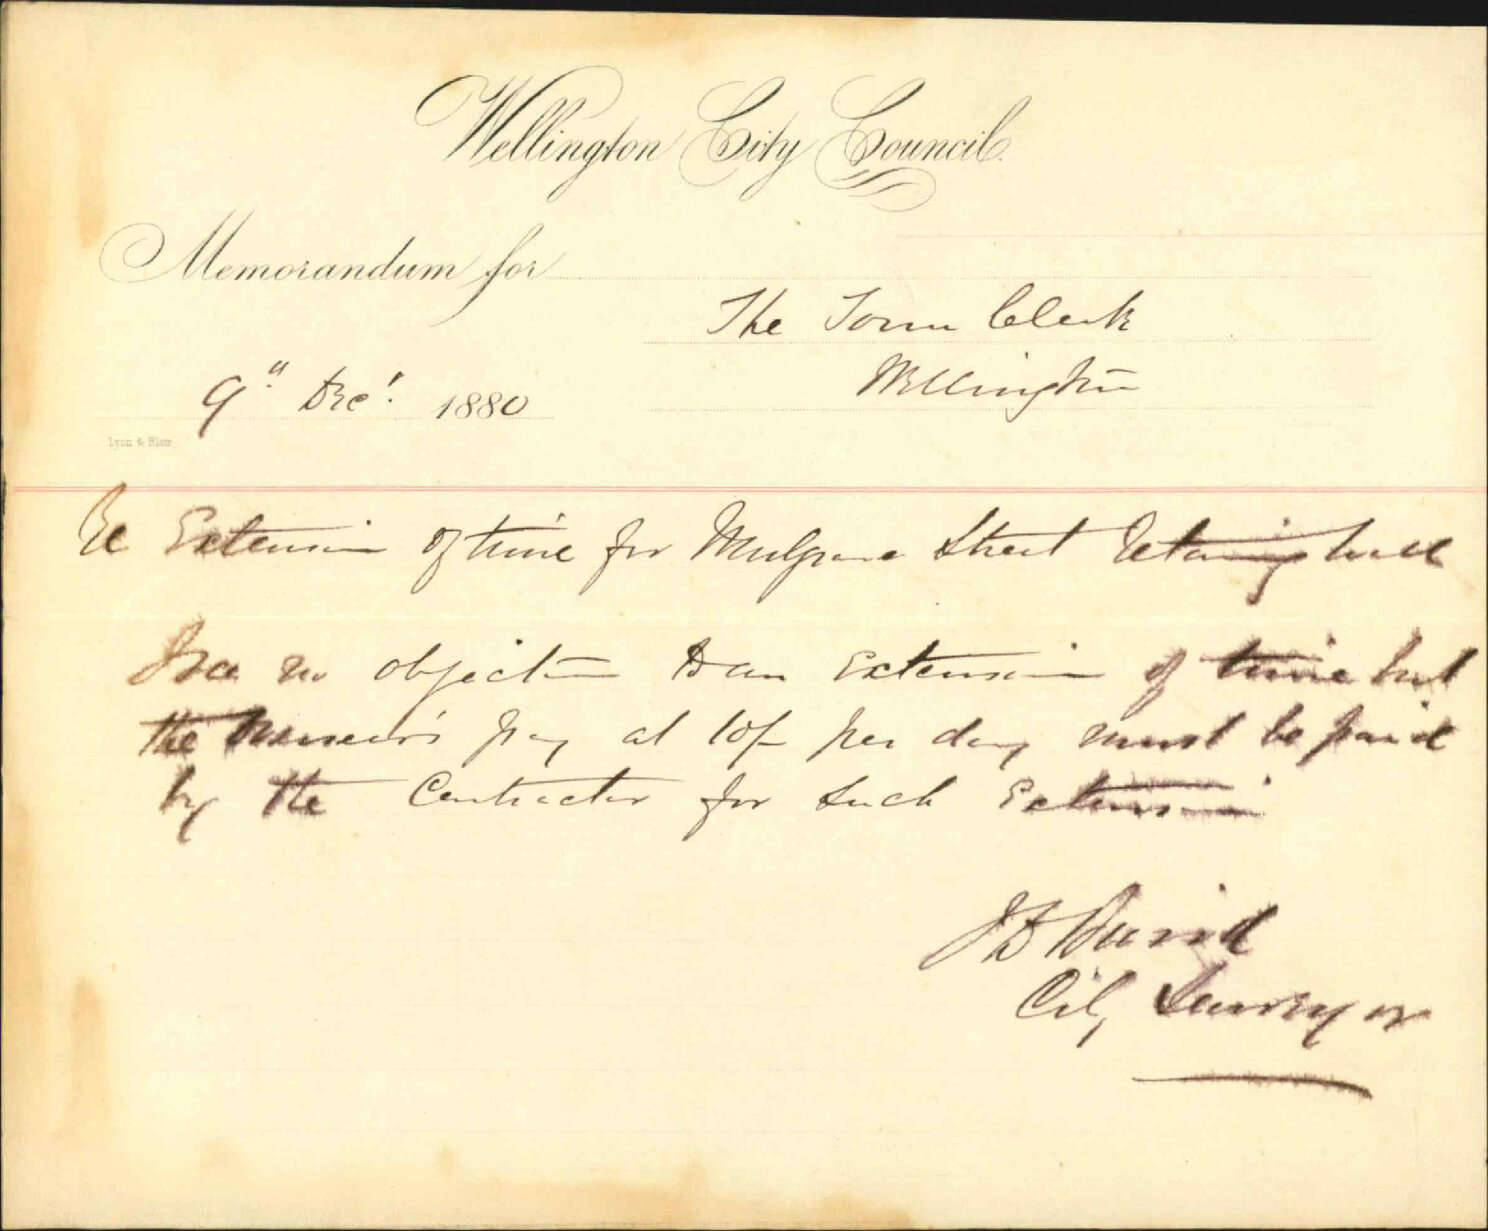 Wellington City Council.
Memorandum for
The Town Clerk
Wellington
9" Dec! 1880
Lyon & Blair
Re Extension of time for Mulgrave Street Retaining wall
I see no objection to an extension of time but
the pay at 10/- per day must be paid
by the Contractor for such Extension
J D Baird
City Surveyor